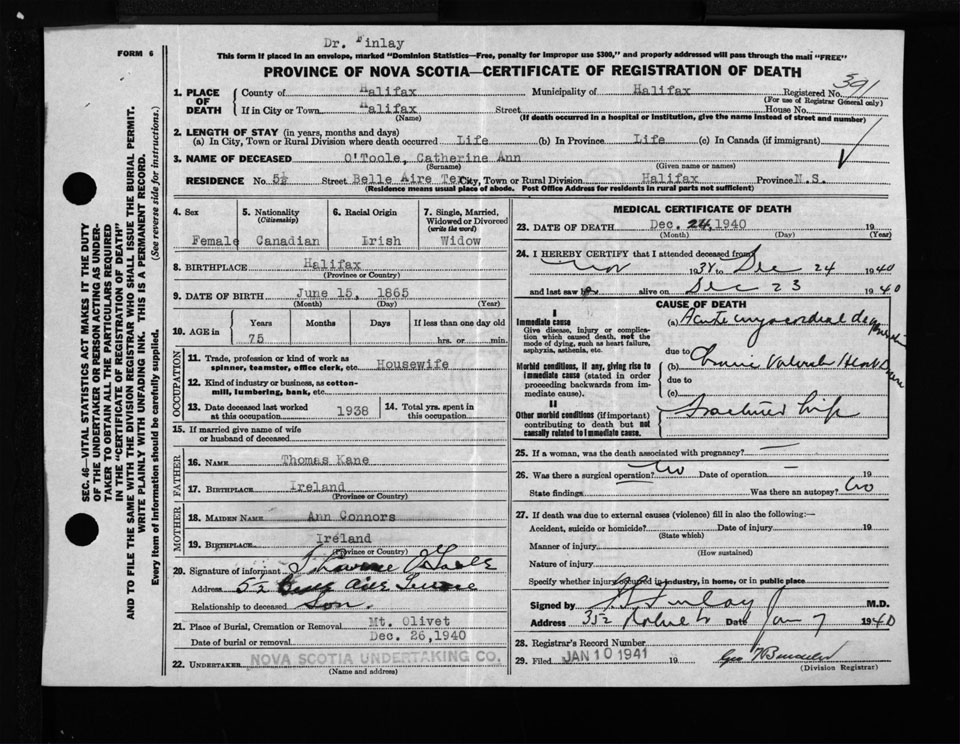 Dr. Finlay
FORM 6
This form if placed in an envelope, marked "Dominion Statistics—Free, penalty for improper use $300," and properly addressed will pass through the mail "FREE"
PROVINCE OF NOVA SCOTIA—CERTIFICATE OF REGISTRATION OF DEATH
391
1. PLACE OF DEATH
County of Halifax Municipality of Halifax Registered No.
(For use of Registrar General only)
If in City or Town Halifax Street House No.
(Name) (If death occurred in a hospital or institution, give the name instead of street and number)
2. LENGTH OF STAY (in years, months and days)
(a) In City, Town or Rural Division where death occurred Life (b) In Province Life (c) In Canada (if immigrant)
3. NAME OF DECEASED O'Toole, Catherine Ann
(Surname) (Given name or names)
RESIDENCE No. 5½ Street Belle Aire Ter. City, Town or Rural Division Halifax Province N.S.
(Residence means usual place of abode. Post Office Address for residents in rural parts not sufficient)
SEC. 46—VITAL STATISTICS ACT MAKES IT THE DUTY
OF THE UNDERTAKER OR PERSON ACTING AS UNDER-
TAKER TO OBTAIN ALL THE PARTICULARS REQUIRED
IN THE "CERTIFICATE OF REGISTRATION OF DEATH"
AND TO FILE THE SAME WITH THE DIVISION REGISTRAR WHO SHALL ISSUE THE BURIAL PERMIT.
WRITE PLAINLY WITH UNFADING INK. THIS IS A PERMANENT RECORD.
Every item of information should be carefully supplied. (See reverse side for instructions.)
4. Sex
Female
5. Nationality
(Citizenship)
Canadian
6. Racial Origin
Irish
7. Single, Married,
Widowed or Divorced
(write the word)
Widow
8. BIRTHPLACE Halifax
(Province or Country)
9. DATE OF BIRTH June 15, 1865
(Month) (Day) (Year)
10. AGE in
Years Months Days If less than one day old
75 hrs. or min.
OCCUPATION
11. Trade, profession or kind of work as
spinner, teamster, office clerk, etc. Housewife
12. Kind of industry or business, as cotton-
mill, lumbering, bank, etc.
13. Date deceased last worked
at this occupation 1938
14. Total yrs. spent in
this occupation
15. If married give name of wife
or husband of deceased
FATHER
16. NAME Thomas Kane
17. BIRTHPLACE Ireland
(Province or Country)
MOTHER
18. MAIDEN NAME Ann Connors
19. BIRTHPLACE Ireland
(Province or Country)
20. Signature of informant O'Toole
Address 5½ Belle Aire Terrace
Relationship to deceased Son.
21. Place of Burial, Cremation or Removal Mt. Olivet
Date of burial or removal Dec. 26,1940
22. UNDERTAKER NOVA SCOTIA UNDERTAKING CO.
(Name and address)
MEDICAL CERTIFICATE OF DEATH
23. DATE OF DEATH Dec. 24, 1940 19
(Month) (Day) (Year)
24. I HEREBY CERTIFY that I attended deceased from
Nov 1938 to Dec 24 1940
and last saw h alive on Dec 23 1940
CAUSE OF DEATH
I
Immediate cause
Give disease, injury or complica-
tion which caused death, not the
mode of dying, such as heart failure,
asphyxia, asthenia, etc.
(a) Acute myocardial
due to
Morbid conditions, if any, giving rise to
immediate cause (stated in order
proceeding backwards from im-
mediate cause).
(b) Chronic Valvular Heart Disease
due to
(c)
II
Other morbid conditions (if important)
contributing to death but not
causally related to immediate cause.
Fractured hip
25. If a woman, was the death associated with pregnancy? —
26. Was there a surgical operation? No Date of operation — 19
State findings Was there an autopsy? No
27. If death was due to external causes (violence) fill in also the following:—
Accident, suicide or homicide? Date of injury 19
(State which)
Manner of injury
(How sustained)
Nature of injury
Specify whether injury occurred in industry, in home, or in public place
Signed by Finlay M.D.
Address 352 Robie St Date Jan 7 1940
28. Registrar's Record Number
29. Filed JAN 10 1941 19
(Division Registrar)